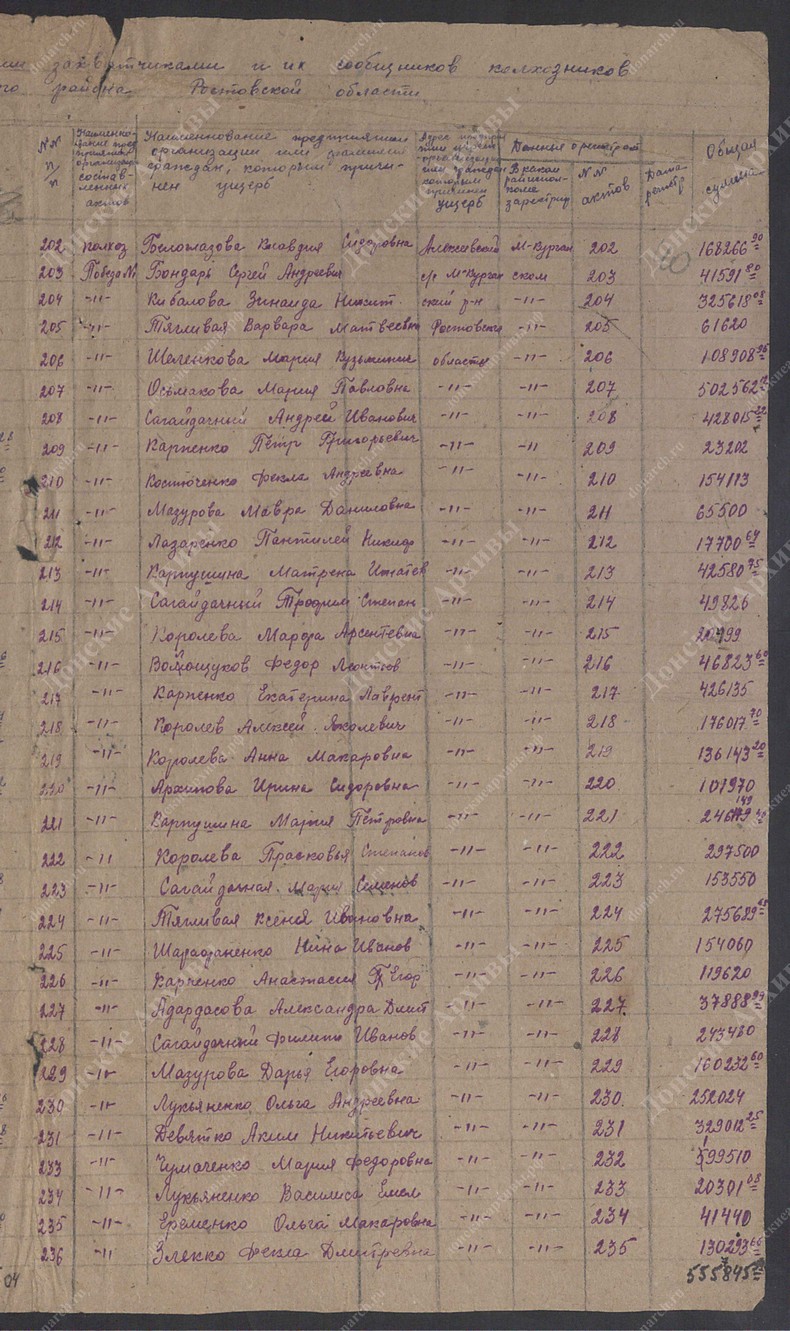 ми захватчиками и их сообщников колхозников
го района Ростовской области
№№ п/п Наименование предприятия организации составленных актов Наименование предприятия организации или фамилии граждан, которым причинен ущерб Адрес предприятия организации или граждан которым причинен ущерб Данные о регистрац Общая сумма
В каком райисполкоме зарегистрир №№ актов Дата регистр
202 колхоз Белоглазова Клавдия Сидоровна Алексеевский М-Курган 202 168266 90
203 Победа №1 Бондарь Сергей Андреевич с/с М-Курган ском 203 41591 80
204 -"- Кибалова Зинаида Никит. ский р-н -"- 204 325618 08
205 -"- Тягливая Варвара Матвеевна Ростовская -"- 205 61620
206 -"- Шеленкова Мария Кузьминич область -"- 206 108908
207 -"- Осьмакова Мария Павловна -"- -"- 207 502562
208 -"- Сагайдачный Андрей Иванович -"- -"- 208 428015 22
209 -"- Карпенко Пётр Григорьевич -"- -" 209 23202
210 -"- Костюченко Фекла Андреевна -"- -"- 210 154113
211 -"- Мазурова Мавра Даниловна -"- -"- 211 65500
212 -"- Лазаренко Пантилей Никиф -"- -"- 212 17700 64
213 -"- Карпушина Матрена Игнатев -"- -"- 213 42580 75
214 -"- Сагайдачный Трофим Степан -"- -"- 214 49826
215 -"- Королева Марфа Арсентевна -"- -"- 215
216 -"- Волощуков Федор Леонтов -"- -"- 216 46823 60
217 -"- Карпенко Екатерина Лаврент -"- -"- 217 426135
218 -"- Королев Алексей Яколевич -"- -"- 218 176017 70
219 -"- Королева Анна Макаровна -"- -"- 219 136143 20
220 -"- Архипова Ирина Сидоровна -"- -"- 220 101970
221 -"- Карпушина Мария Петровна -"- -"- 221
222 -" Королева Прасковья Степанов -"- -"- 222 297500
223 -"- Сагайдачная Мария Семенов -"- -"- 223 153550
224 -"- Тягливая Ксеня Ивановна -"- -"- 224 275689 68
225 -"- Нина Иванов -"- -"- 225 154060
226 -"- Харченко Анастасия Егор -"- -"- 226 119620
227 -"- Адардасова Александра Дмит -"- -"- 227 37888 99
228 -"- Сагайдачный Филипп Иванов -"- -"- 228 243480
229 -"- Мазурова Дарья Егоровна -"- -"- 229 160232 60
230 -"- Лукьяненко Ольга Андреевна -"- -"- 230 252024
231 -"- Девятко Аким Никитьевич -"- -"- 231 329012 25
233 -"- Чумаченко Мария Федоровна -"- -"- 232 599510
234 -"- Лукьяненко Василиса Емел -"- -"- 233 20301 08
235 -"- Еременко Ольга Макаровна -"- -"- 234 41440
236 -" Злекко Фекла Дмитревна -"- -"- 235 130293 66
04